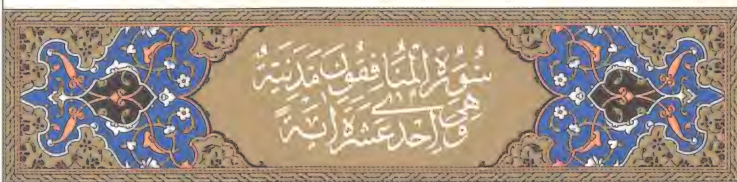 سُورَةُ الْمُنَافِقُونَ مَدَنِيَّةٌ
وَهِيَ إِحْدَى عَشَرَةَ آيَةً